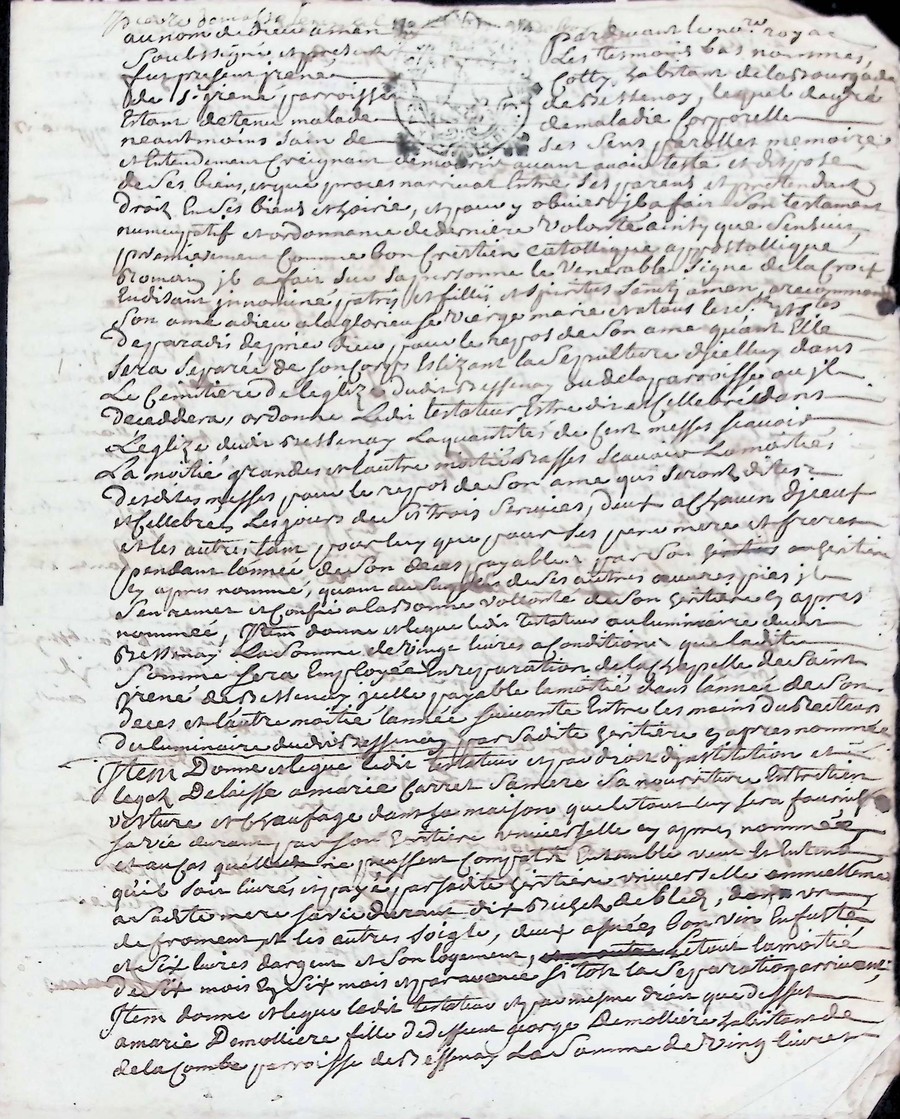 au nom de dieu amen Pardevant le no.re royal
Soubsigné et present Les tesmoins bas nommés,
fut present irené Cotty habitant de la Bourgade
de St irené parroisse de Bessenay, lequel de gré
Estant detenu malade de maladie Corporelle
neantmoins sain de Ses Sens parolles memoire
et Entendement Creignant de mourir avant avoir testé et disposé
de Ses biens, et que proces narrivat Entre Ses parens et pretendant
droit En Ses biens et hoirie, et pour y obvier jl a fait Son testament
nuncupatif et ordonnance de derniere volonté ainsy que Sensuit,
premierement Comme bon Cretien Catollique appostollique
Romain jl a fait Sur Sa personne le venerable Signe de la Croix
En disant jn nomine patris et fillij et Spiritus Santy amen, a recommandé
Son ame a dieu a la glorieuse vierge marie et a tous les S.ts et S.tes
de paradis de prier dieu pour le repos de Son ame quant Elle
Sera Separée de Son Corps Eslizant la Sepulture djcelluy dans
Le Cimitiere de leglize dudit Bessenay ou de la parroisse ou jl
deceddera, ordonne Ledit testateur Estre dit et Cellebrés dans
Leglize dudit Bessenay La quantités de Cent messes Scavoir
La moitié grandes et lautre moitié Basses Scavoir La moitiés
desdites messes pour le repos de Son ame qui Seront dites
et Cellebrés Les jours de Ses trois Services, deux a Chacun djceux
et les autres tant pour luy que pour Ses pere mere et freres
pendant lannée de Son deces payable par Son heritiere
Cy apres nommé, quant au de Ses autres œuvres pies jl
Sen remet et Confie a la Bonne vollonté de Son heritiere Cy apres
nommée, Jtem donne et legue ledit testateur au luminaire dudit
Bessenay La Somme de vingt livres a Condition que ladite
Somme Sera Employée En reparation de la Chappelle de Saint
jrené de Bessenay jcelle payable la moitié dans lannée de Son
deces et lautre moitié lannée Suivante Entre les mains du Recteur
du luminaire dudit Bessenay par Sadite heritiere Cy apres nommée
Jtem Donne et legue ledit testateur et par droit djnstitution et
legat Delaisse a marie Carret Sa mere Sa nourriture Entretien
vesture et Chaufage dans Sa maison que le tout luy Sera fournit
Sa vie durant par Son heritiere vniverselle Cy apres nommée
et au Cas quelles ne pussent Compatir Ensemble veut Et Entend
quil Soit livrés et payé par Sadite heritiere vniverselle annuellement
a Sadite mere Sa vie durant dix Bichets de Bled, dont
de froment Et les autres Soigle, deux anées bon vin En fuste
et Six livres dargent et Son logement, le tout la moitié
de Six mois En Six mois et par avance Sitot la Separation arrivant,
Jtem donne et legue ledit testateur et par mesme droit que dessus
a marie Demolliere fille de deffunt george Demolliere habitant de
de la Combe parroisse de Bessenay La Somme de vingt livres